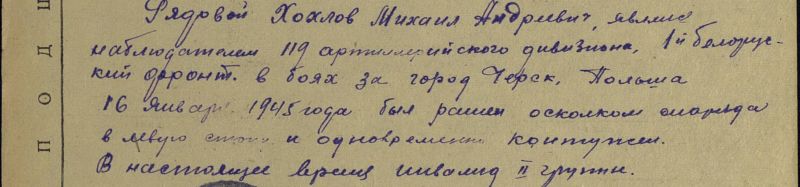 Рядовой Хохлов Михаил Андреевич, являяс
наблюдателем 119 артиллерийского дивизиона, 1й белорус-
кий фронт. в боях за город Черск, Польша
16 января 1945 года был ранен осколком снаряда
в левую стопу и одновременно контужен.
В настоящее время инвалид II группы.
П О Д Ш